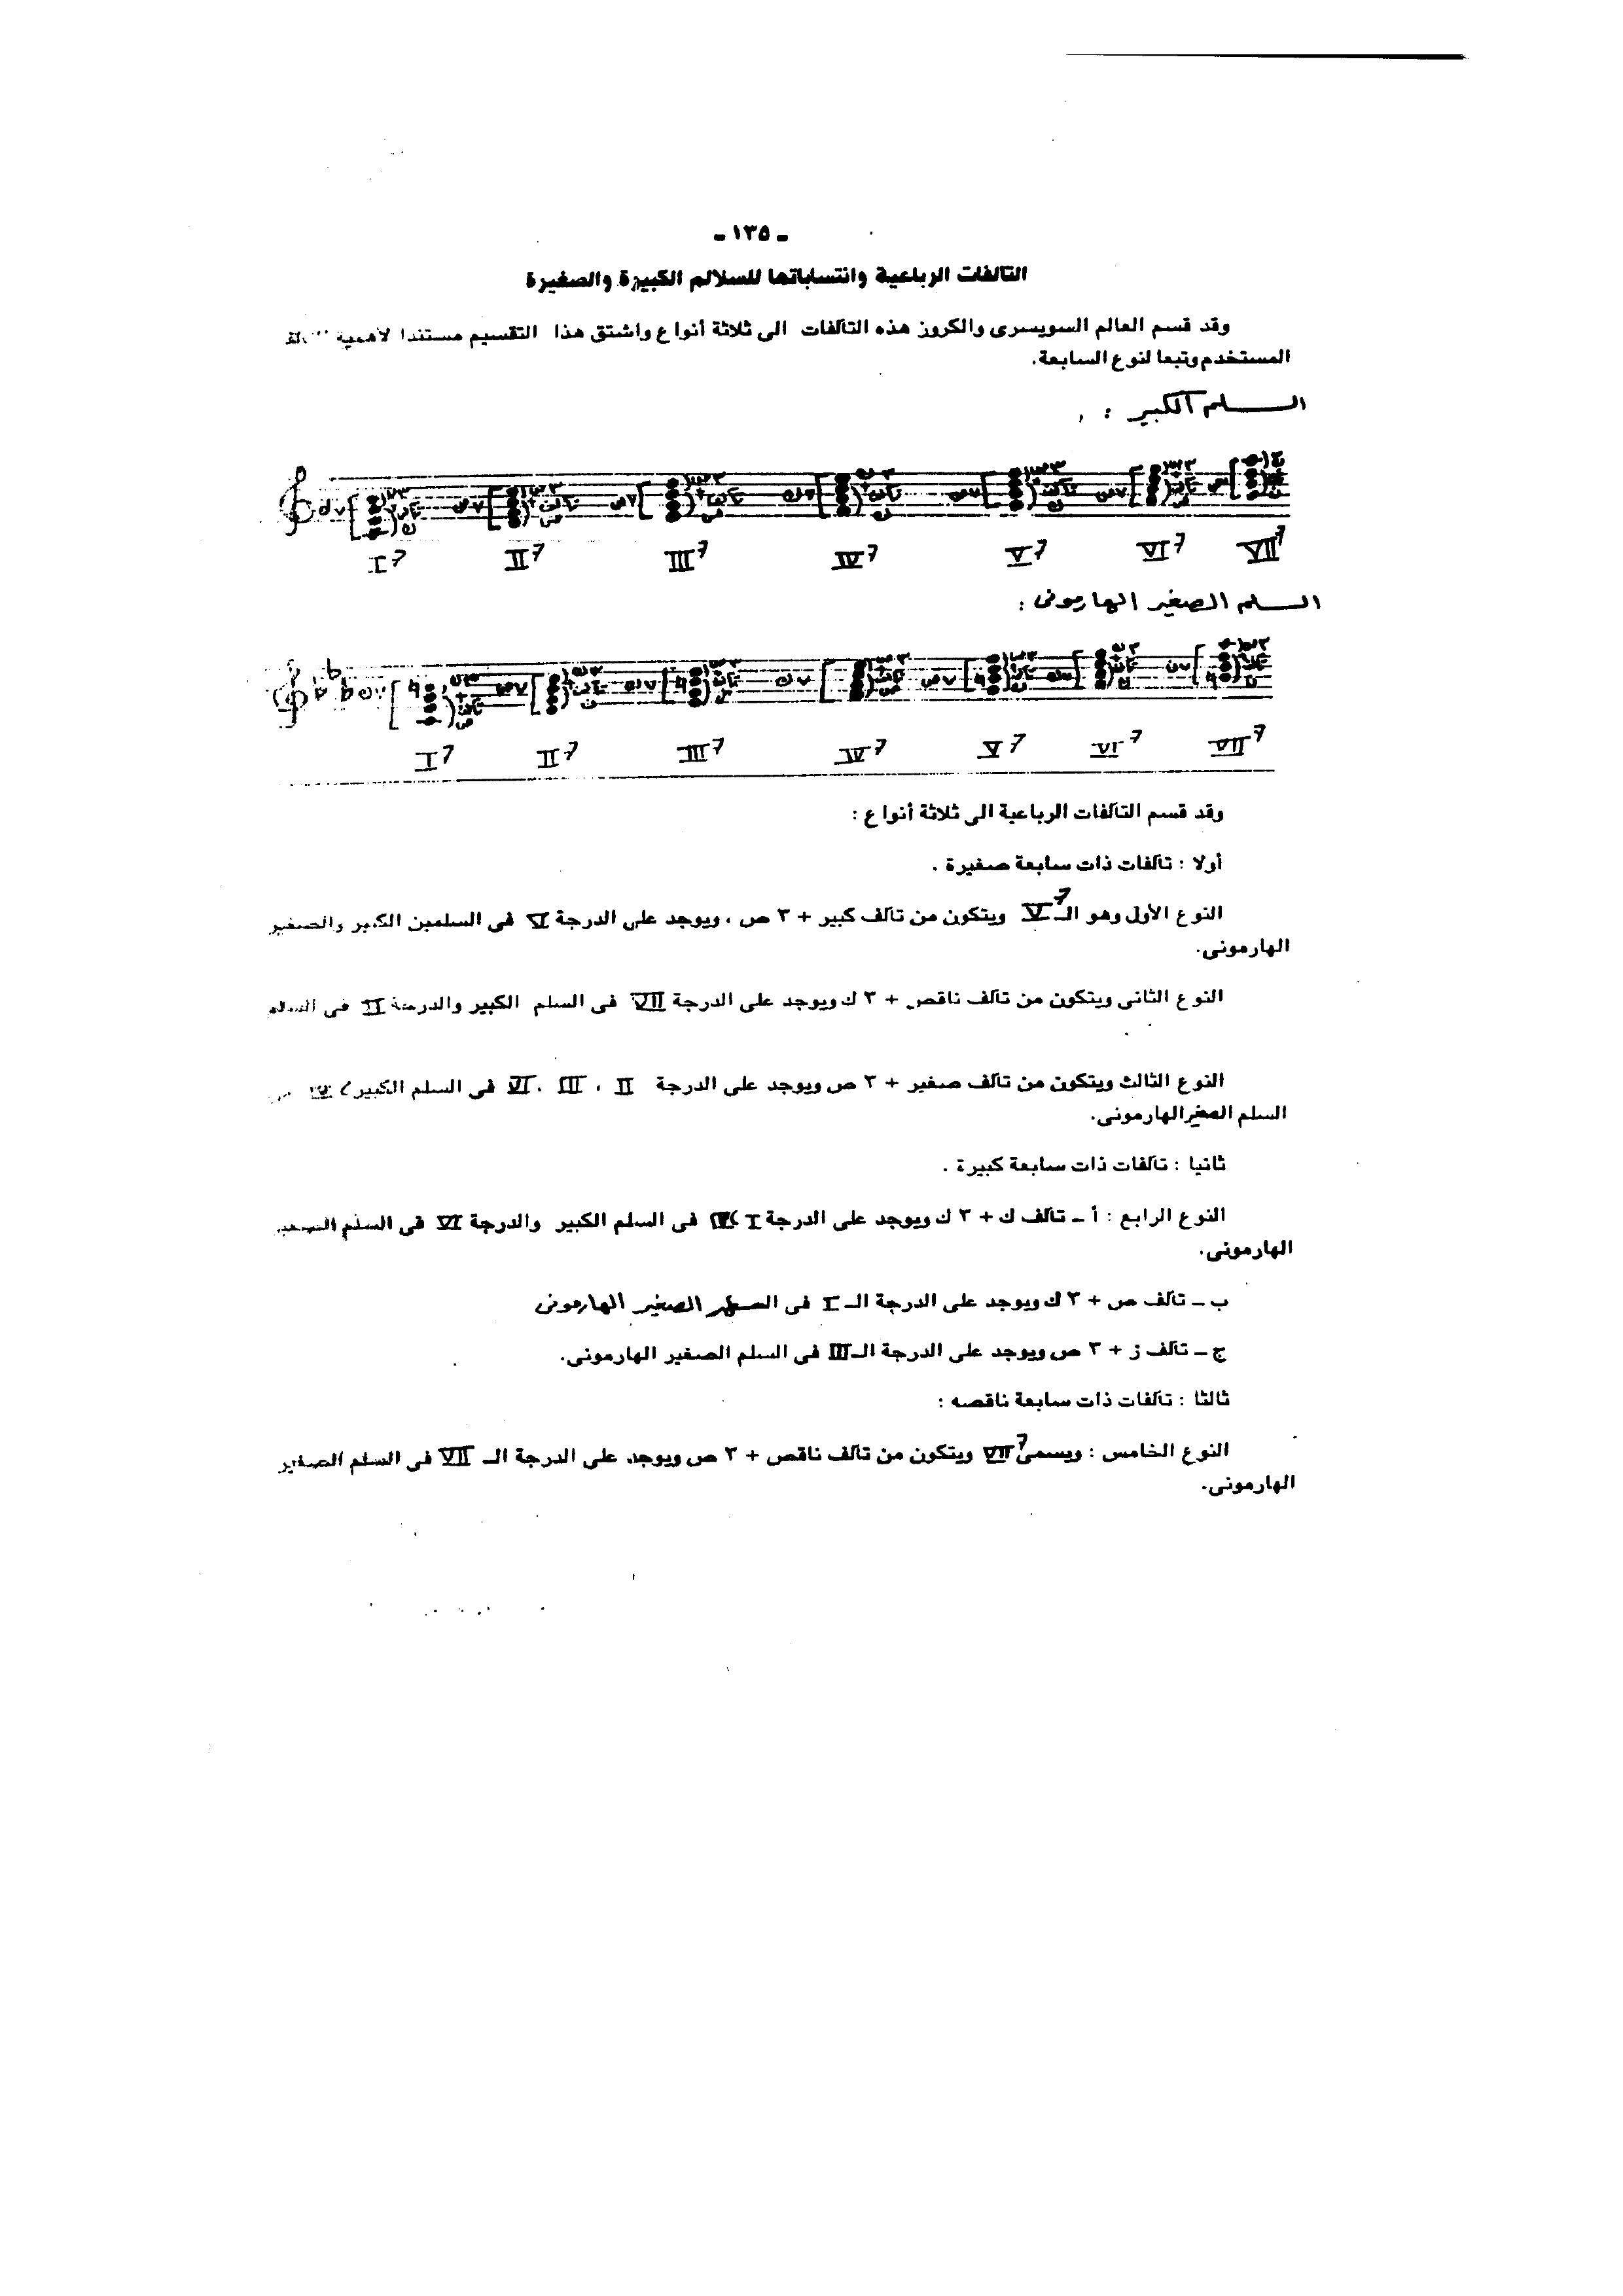 ـ ١٣٥ ـ
التآلفات الرباعية وانتساباتها للسلالم الكبيرة والصغيرة
وقد قسم العالم السويسرى والكروز هذه التآلفات الى ثلاثة أنواع واشتق هذا التقسيم مستندا لأهمية
المستخدم وتبعا لنوع السابعة.
السلم الكبير :
I7 II7 III7 IV7 V7 VI7 VII7
السلم الصغير الهارمونى :
I7 II7 III7 IV7 V7 VI7 VII7
وقد قسم التآلفات الرباعية الى ثلاثة أنواع :
أولا : تآلفات ذات سابعة صغيرة .
النوع الأول وهو الـ V7 ويتكون من تآلف كبير + ٣ ص ، ويوجد على الدرجة VI فى السلمين الكبير والصغير
الهارمونى.
النوع الثانى ويتكون من تآلف ناقص + ٣ ك ويوجد على الدرجة VII فى السلم الكبير والدرجة II فى السلم
النوع الثالث ويتكون من تآلف صغير + ٣ ص ويوجد على الدرجة II ، III ، VI فى السلم الكبير
السلم الصغير الهارمونى.
ثانيا : تآلفات ذات سابعة كبيرة .
النوع الرابع : أ ـ تآلف ك + ٣ ك ويوجد على الدرجة I فى السلم الكبير والدرجة VI فى السلم الصغير
الهارمونى.
ب ـ تآلف ص + ٣ ك ويوجد على الدرجة الـ I فى الصغير الهارمونى
ج ـ تآلف ز + ٣ ص ويوجد على الدرجة الـ III فى السلم الصغير الهارمونى.
ثالثا : تآلفات ذات سابعة ناقصه :
النوع الخامس : ويسمى VII7 ويتكون من تآلف ناقص + ٣ ص ويوجد على الدرجة الـ VII فى السلم الصغير
الهارمونى.